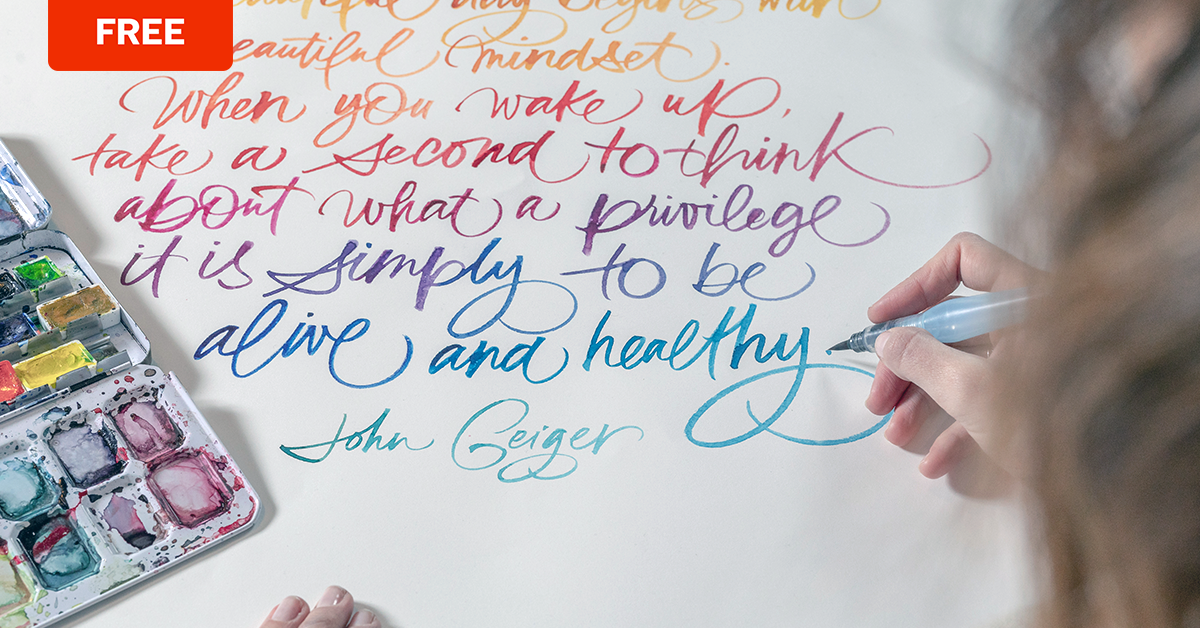 FREE
beautiful day begins with
beautiful mindset.
When you wake up,
take a second to think
about what a privilege
it is simply to be
alive and healthy.
John Geiger